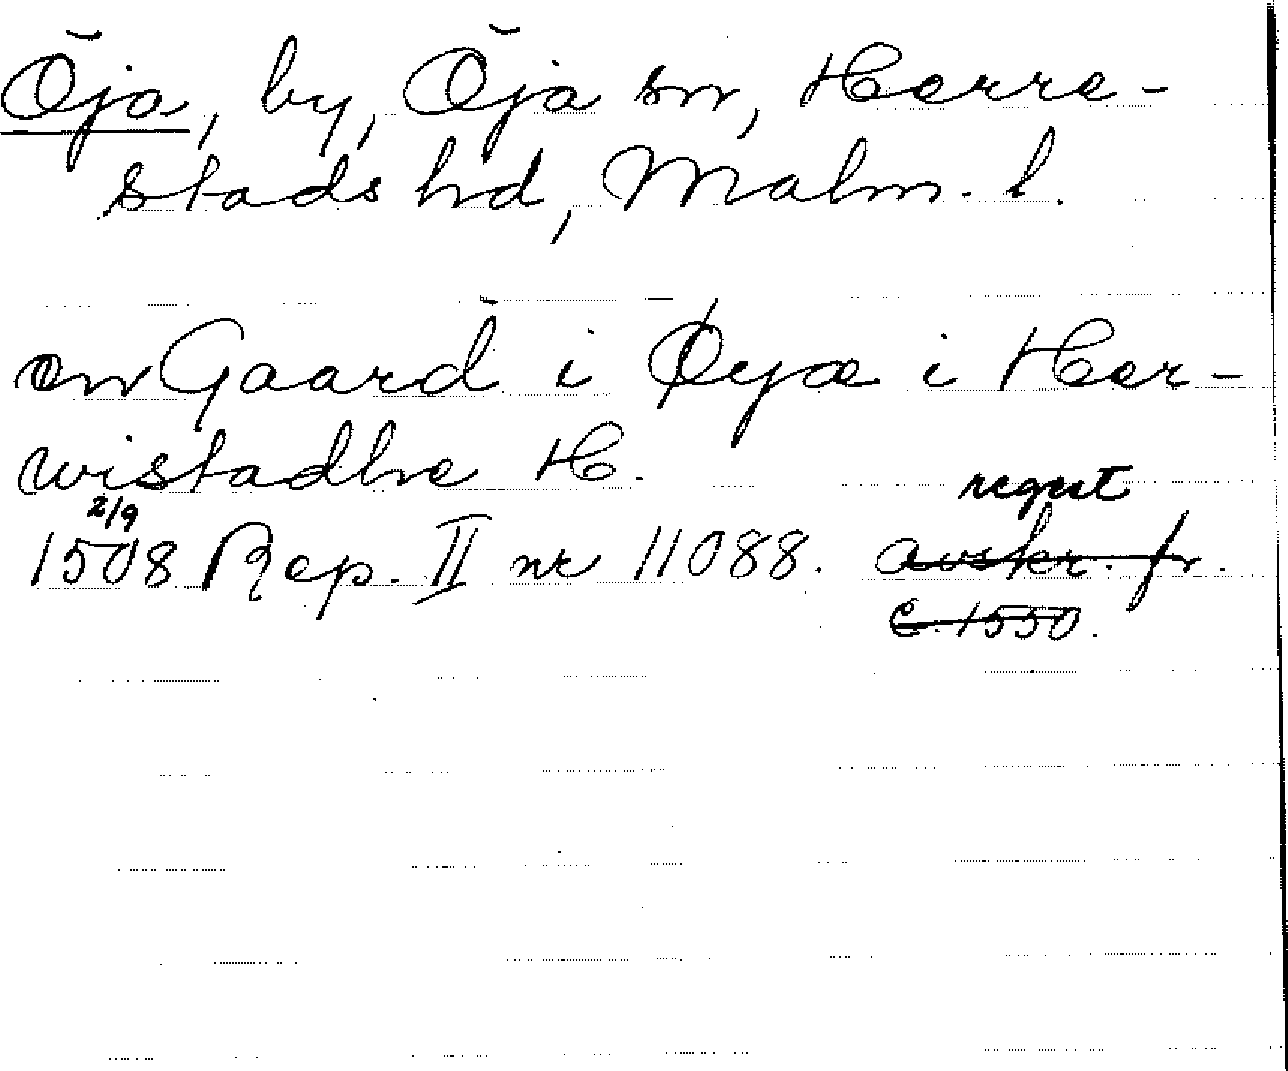 Öja, by, Öja sn, Herre-
stads hd, Malm. l.
en Gaard i Øyæ i Her-
wistadhe H.
regest
2/9
1508 Rep. II nr 11088. avskr. fr.
c. 1550.